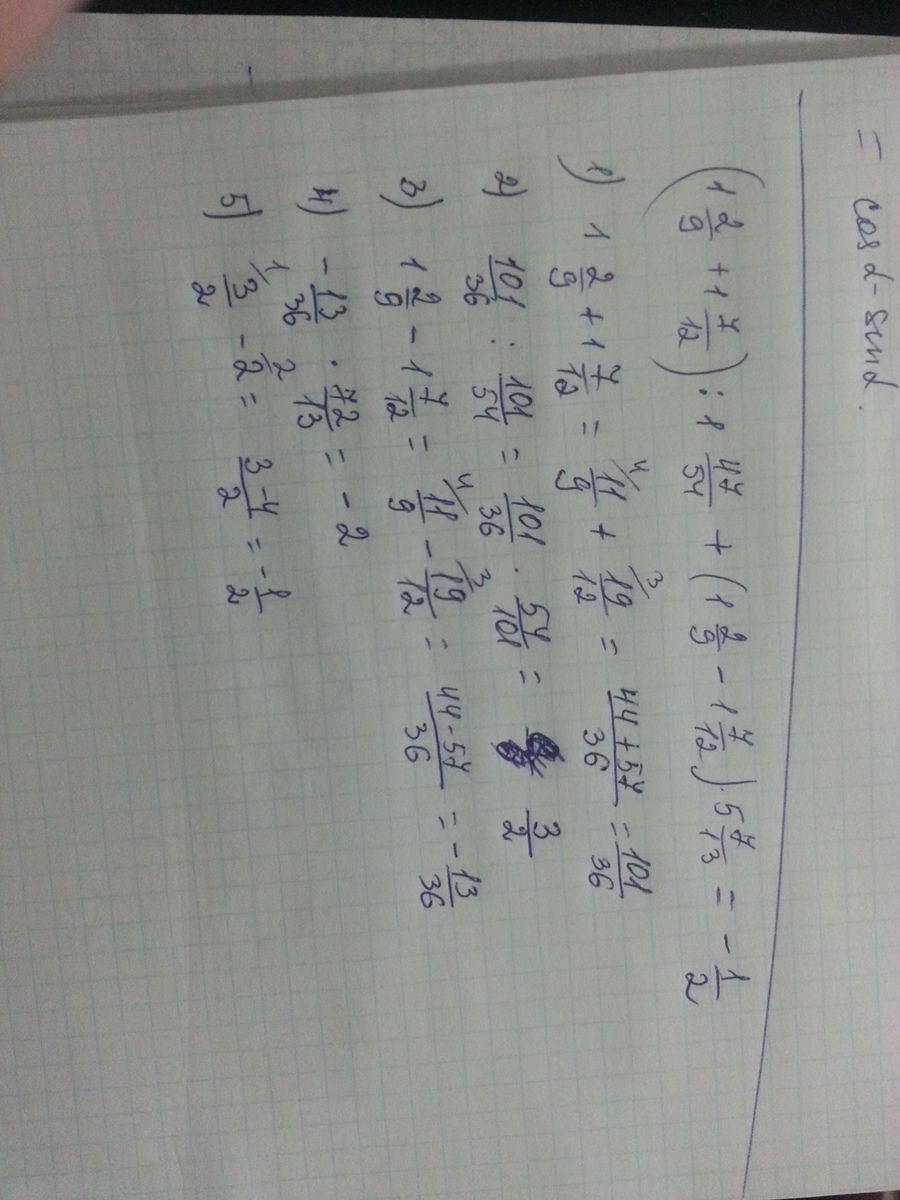 = cos α - sin α.
(1 2/9 + 1 7/12) : 1 47/54 + (1 2/9 - 1 7/12) · 5 7/13 = - 1/2
1) 1 2/9 + 1 7/12 = 11/9 + 19/12 = (44+57)/36 = 101/36
2) 101/36 : 101/54 = 101/36 · 54/101 = 3/2
3) 1 2/9 - 1 7/12 = 11/9 - 19/12 = (44-57)/36 = - 13/36
4) - 13/36 · 72/13 = - 2
5) 3/2 - 2 = (3-4)/2 = - 1/2